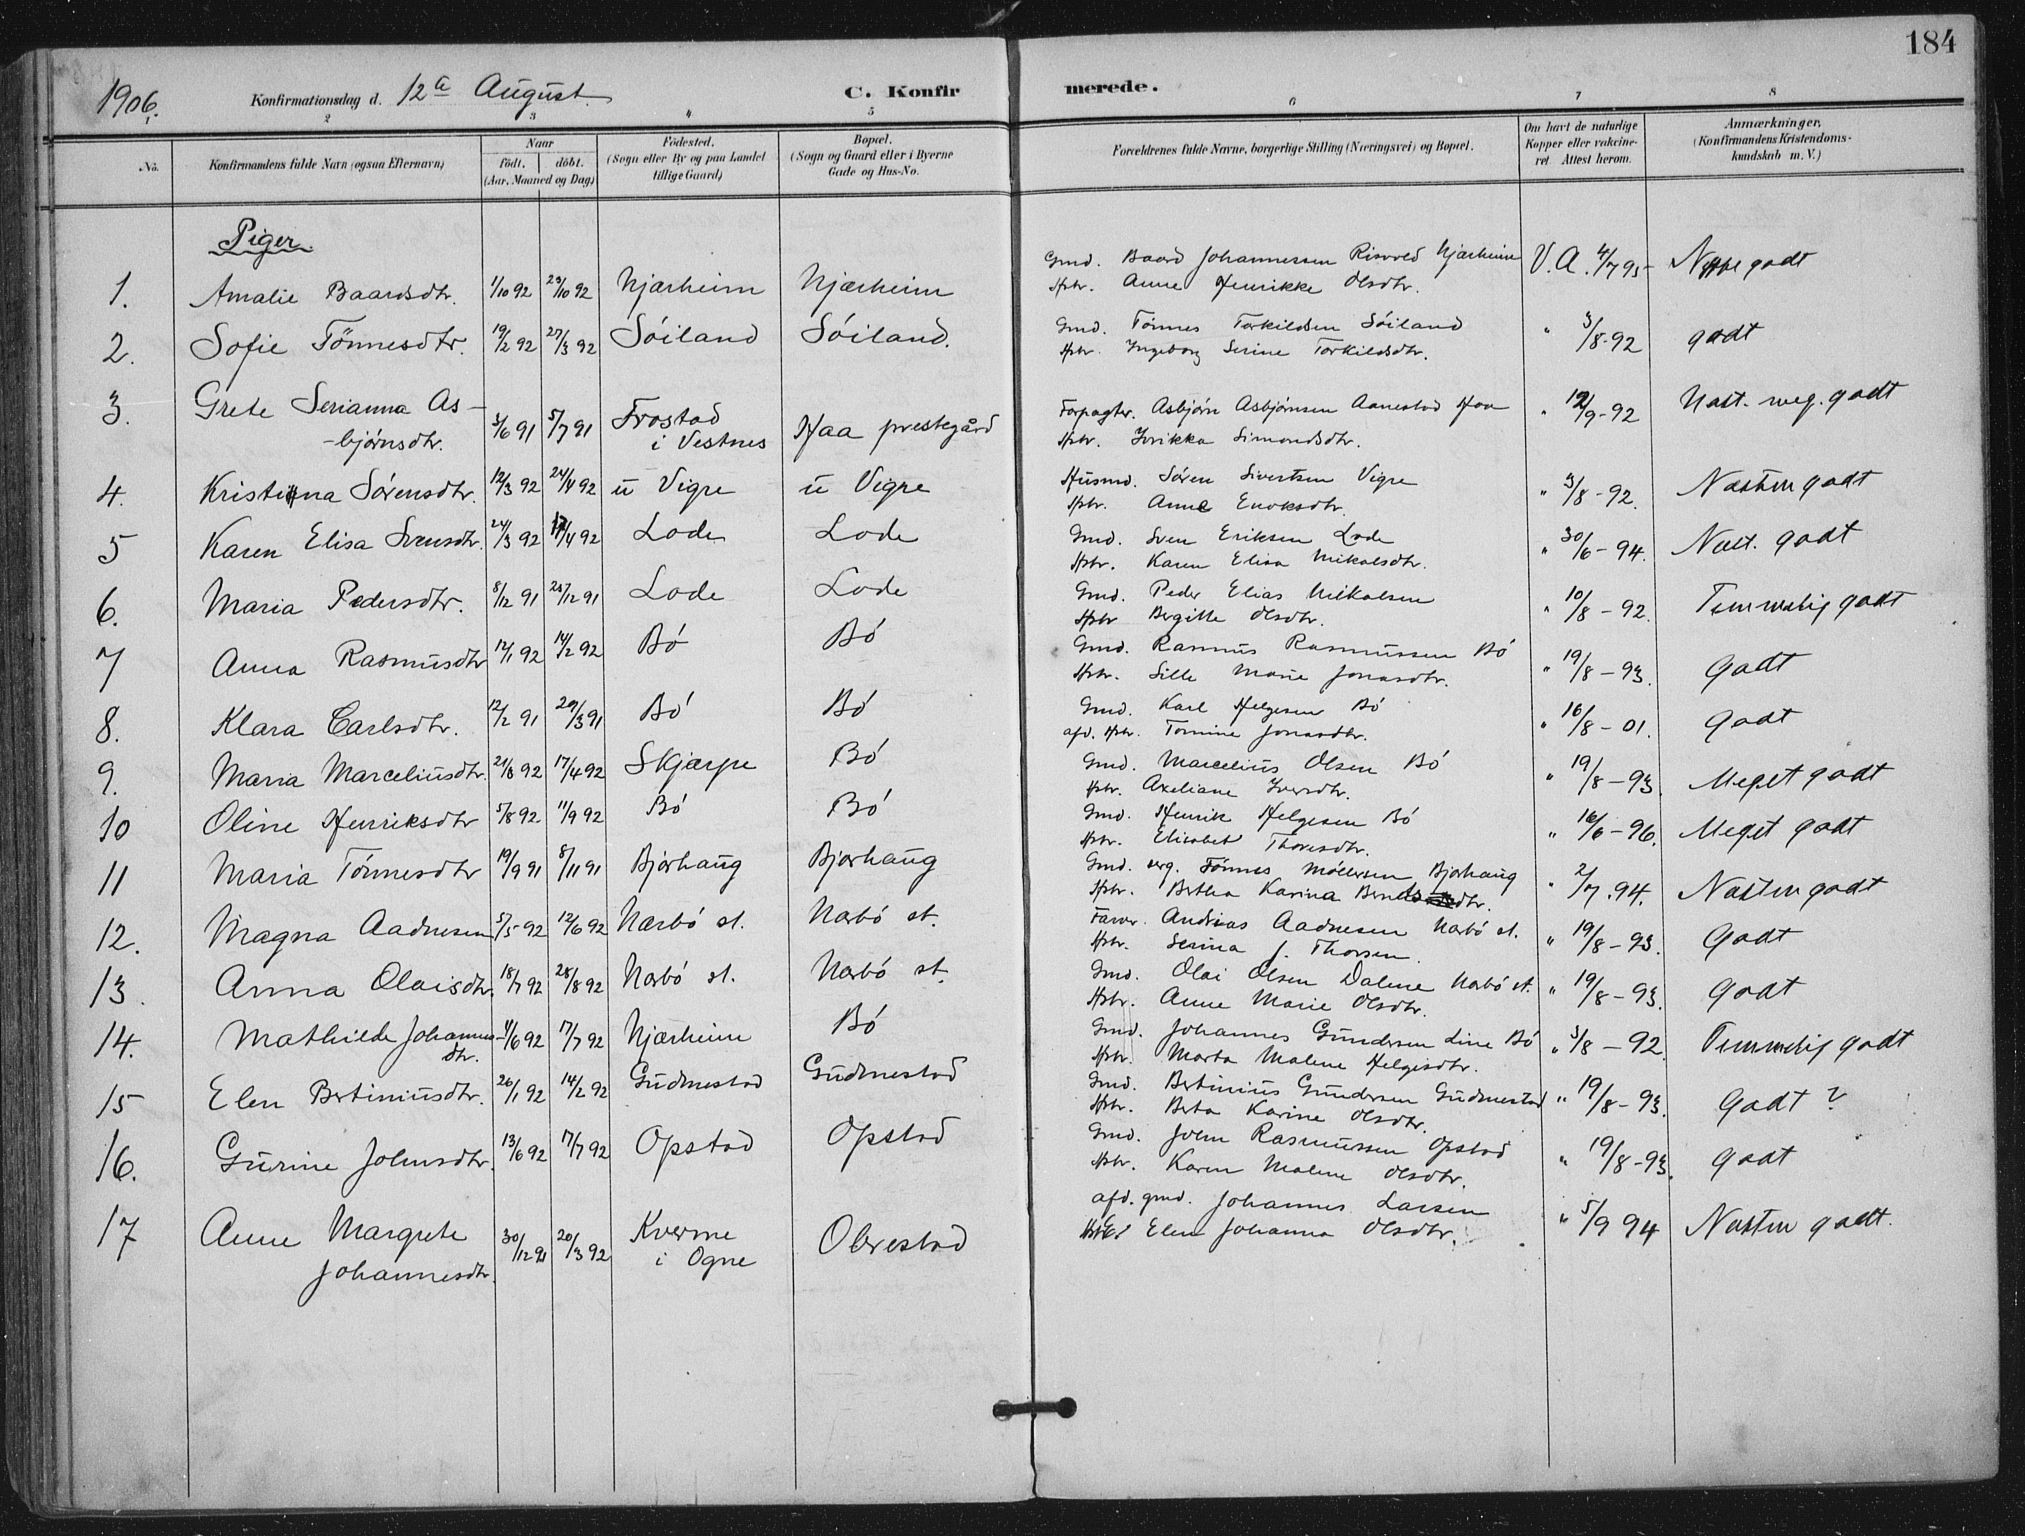 184
1906. Konfirmationsdag d. 12te August. C. Konfirmerede.
1 2 3 4 5 6 7 8
No. Konfirmandens fulde Navn (ogsaa Efternavn) Naar født. døbt. (Aar, Maaned og Dag) Fødested. (Sogn eller By og paa Landet tillige Gaard) Bopæl. (Sogn og Gaard eller i Byerne Gade og Hus-No. Forældrenes fulde Navne, borgerlige Stilling (Næringsvei) og Bopæl. Om havt de naturlige Kopper eller vakcineret. Attest herom. Anmærkninger. (Konfirmandens Kristendomskundskab m. V.)
Piger.
1. Amalie Baardsdtr. 1/10 92 29/10 92 Njærheim Njærheim Gmd. Baard Johannessen Risvold Njærheim V. A. 4/7 95 godt
Hstr. Anne Henrikke Olsdtr.
2. Sofie Tönnesdtr. 19/2 92 27/3 92 Söiland Söiland. Gmd. Tönnes Torkildsen Söiland " 3/8-92 godt
Hstr. Ingeborg Serine Torkildsdtr.
3. Grete Serianna As- 3/6 91 5/7 91 Frostad Haa prestegård Forpagter. Asbjørn Asbjørnsen Aanestad Haa " 12/9-92 Næst. meg. godt
-bjørnsdtr. i Vestnes Hstr. Simondsdtr.
4. Kristina Sørensdtr. 12/3 92 24/4 92 u Vigre u Vigre Husmd. Søren Sivertsen Vigre " 3/8-92. Næsten godt
Hstr. Anne Enoksdtr.
5 Karen Elisa Svensdtr. 24/3 92 17/4 92 Lode Lode Gmd. Sven Eriksen Lode " 30/6-94. Næst. godt
Hstr. Karen Elisa Mikalsdtr.
6. Maria Pedersdtr. 8/12 91 25/12 91 Lode Lode Gmd. Peder Elias Mikalsen " 10/8-92. Temmelig godt
Hstr Bergitte Olsdtr.
7 Anna Rasmusdtr 12/1 92 14/2 92 Bö Bö Gmd. Rasmus Rasmussen Bö " 19/8-93. Godt
Hstr. Sille Marie Jonasdtr.
8. Klara Carlsdtr. 12/2 91 29/3 91 Bö Bö Gmd. Karl Helgesen Bö " 16/8-01. Godt
afd. Hstr. Tomine Jonasdtr.
9. Maria Marceliusdtr. 21/3 92 17/4 92 Skjærpe Bö Gmd. Marcelius Olsen Bö " 19/8-93. Meget godt
Hstr. Axeliane Iversdtr.
10 Oline Henriksdtr 5/8 92. 11/9 92 Bö Bö Gmd. Henrik Helgesen Bö " 16/6-96. Meget godt
Hstr. Elisabet Thoresdtr.
11 Maria Tönnesdtr 19/9 91 8/11 91 Bjorhaug Bjorhaug Gmd. Tönnes Möllersen Bjorhaug " 2/7.94. Næsten godt
Hstr. Bertha Karina dtr.
12. Magna Aadnesen 5/5-92 12/6 92 Nærbö st. Nærbö st. Farver. Andreas Aadnesen Nærbö st. " 19/8-93. Godt
Hstr. Serina J. Thorsen.
13. Anna Olaisdtr. 18/7 92 28/8 92 Nærbö st. Nærbö st. Gmd. Olai Olsen Dalene Nærbö st. " 19/8-93. Godt
Hstr. Anne Marie Olsdtr.
14. Mathilde Johannes- 4/6 92 17/7 92 Njærheim Bö Gmd. Johannes Gundersen Line Bö " 3/8-92. Temmelig godt
dtr. Hstr. Marta Malene Helgesdtr.
15 Elen Bertiniusdtr. 26/1 92 14/2 92 Gudmestad Gudmestad Gmd. Bertinius Gundersen Gudmestad " 19/8-93. Godt ?
Hstr. Berta Karine Olsdtr.
16. Gurine Johnsdtr. 13/6 92 17/7 92 Opstad Opstad Gmd. John Rasmussen Opstad " 19/8-93. godt
Hstr. Karen Malene Olsdtr.
17 Anne Margrete 30/12 91 20/3 92 Kverme Obrestad afd. gmd. Johannes Larsen " 5/9 94 Næsten godt.
Johannesdtr. i Ogne Elen Johanna Olsdtr.